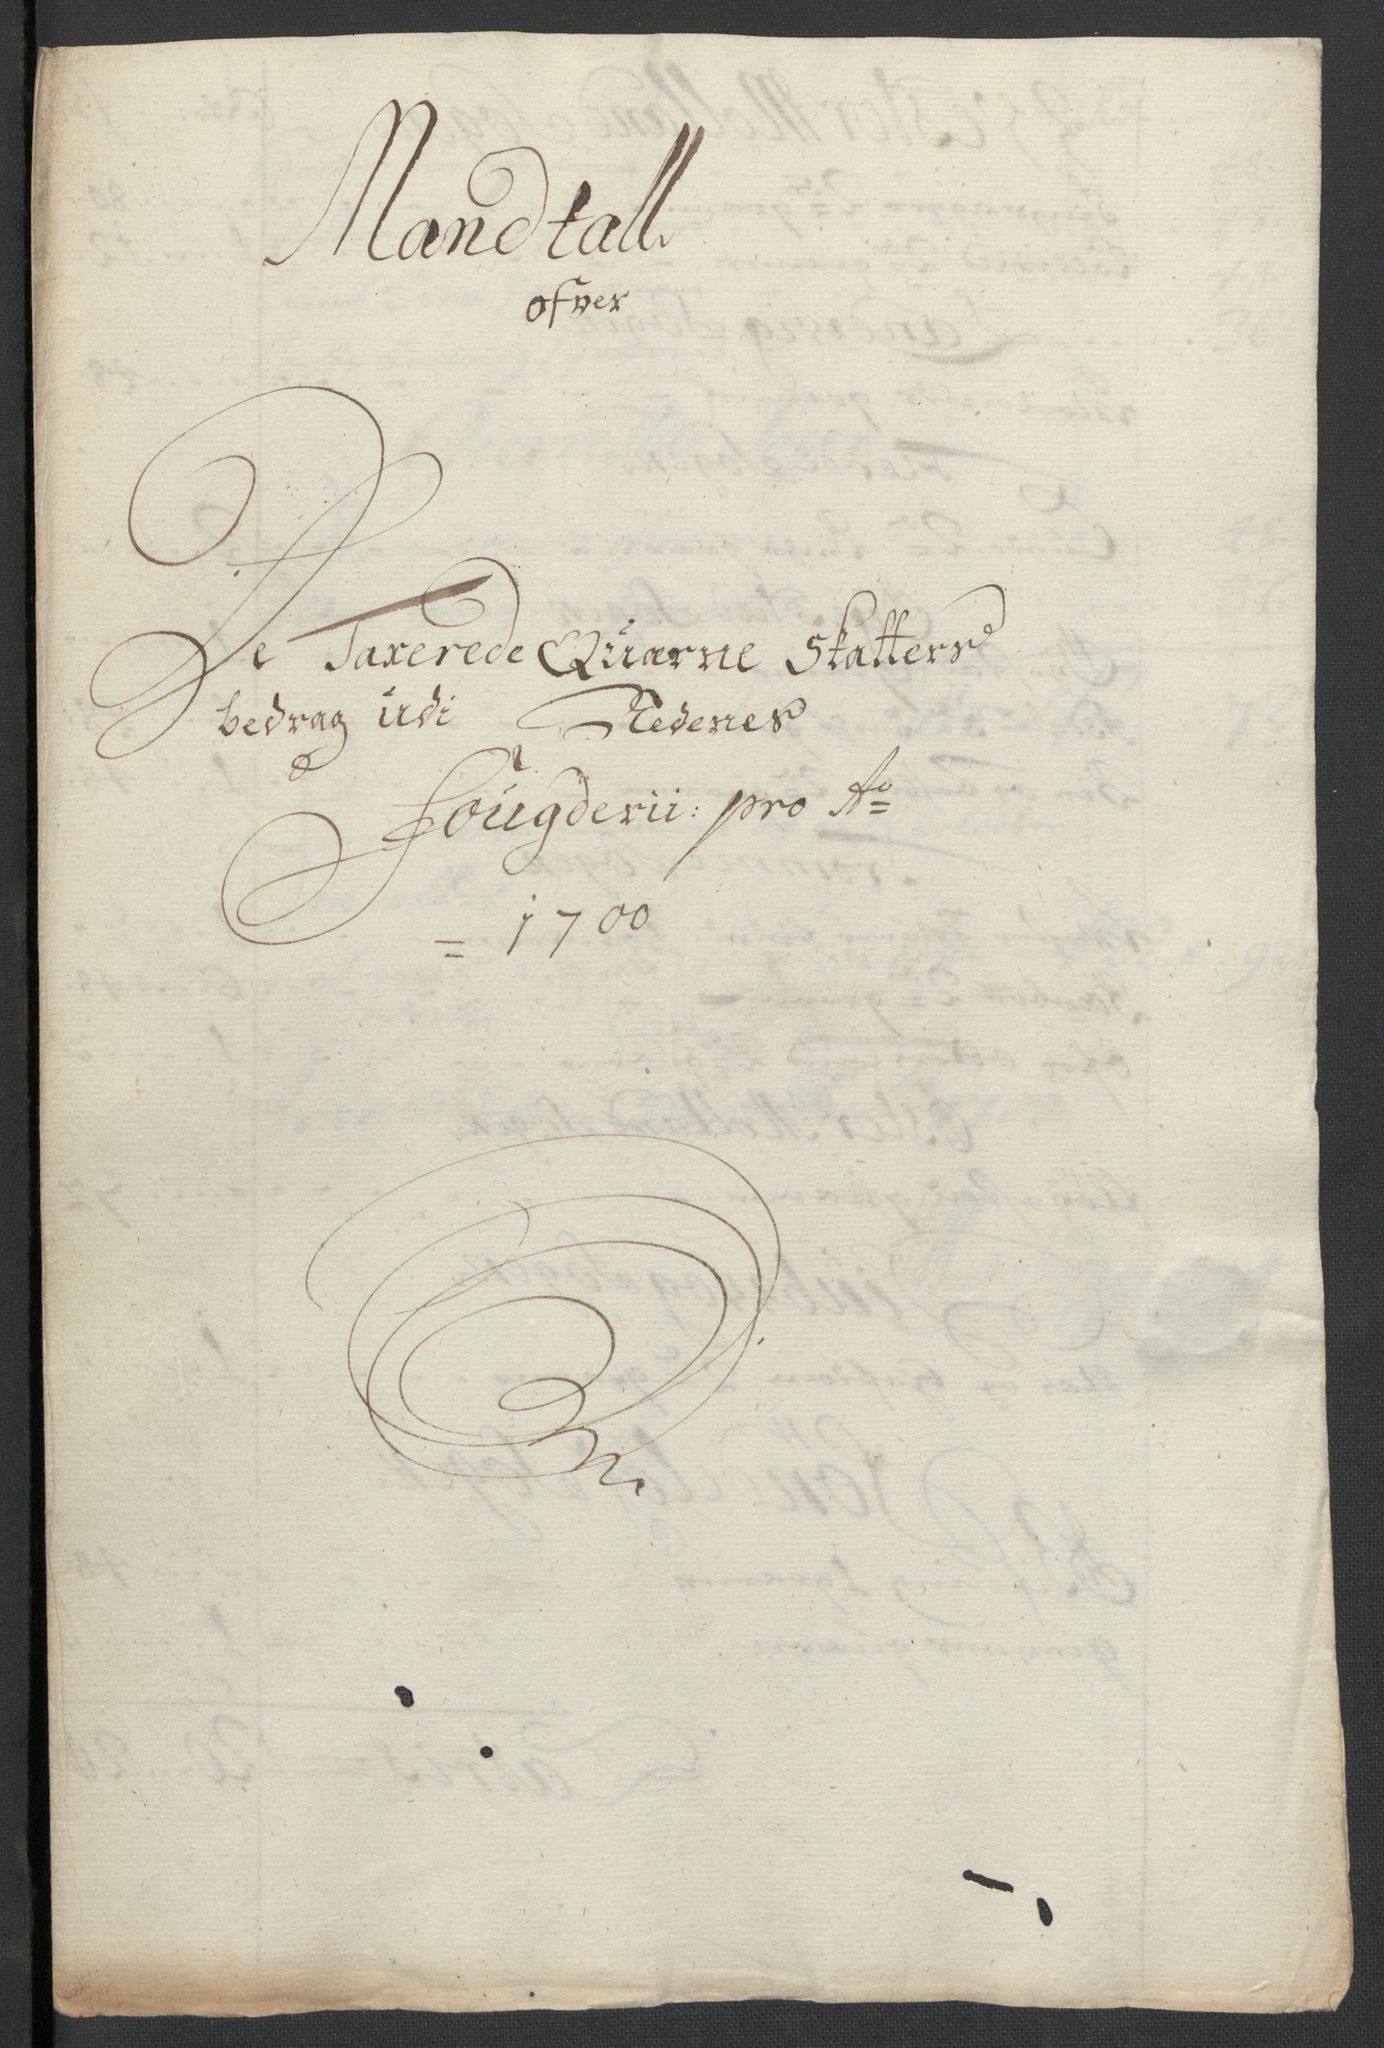 Mandtall
ofver
De Taxerede Quærne Skatters
bedrag udi Nedenes
Fougderii: pro Ao
= 1700